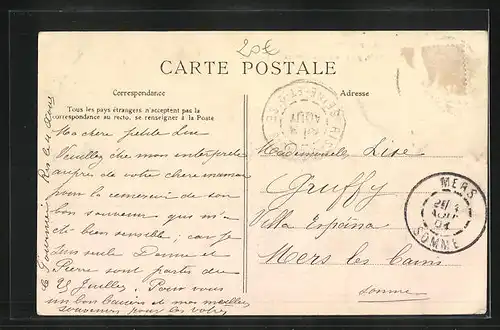 20€
CARTE POSTALE
Correspondance
Adresse
Tous les pays étrangers n'acceptent pas la
correspondance au recto, se renseigner à la Poste
Ma chère petite Lise
Veuillez être mon interprète
auprès de votre chère maman
pour la remercier de son
bon souvenir qui m'a
été bien sensible; car je
suis seule Denise et
Pierre sont partis du
25 Juillet. Pour vous
un bon baiser et mes meilleurs
souvenirs pour les vôtres
Mademoiselle Lise
Gruffy
Villa
Mers les bains
Somme
MERS
SOMME